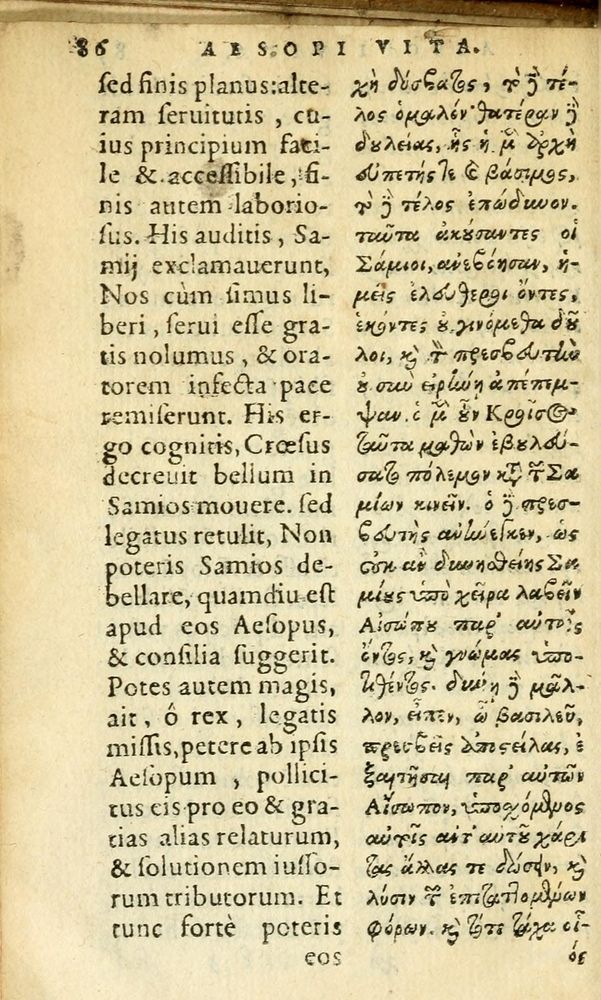 86 AESOPI VITA.
sed finis planus: alte-
ram seruitutis, cu-
ius principium faci-
le & accessibile, fi-
nis autem laborio-
sus. His auditis, Sa-
mij exclamauerunt,
Nos cùm simus li-
beri, serui esse gra-
tis nolumus, & ora-
torem infecta pace
remiserunt. His er-
go cognitis, Crœsus
decreuit bellum in
Samios mouere. sed
legatus retulit, Non
poteris Samios de-
bellare, quamdiu est
apud eos Aesopus,
& consilia suggerit.
Potes autem magis,
ait, ô rex, legatis
missis, petere ab ipsis
Aesopum, pollici-
tus eis pro eo & gra-
tias alias relaturum,
& solutionem iusso-
rum tributorum. Et
tunc fortè poteris
eos
χὴ δύσβατος, τὸ δὲ τέ-
λος ὁμαλόν· θατέραν δὲ
δουλείας, ἧς ἡ μὲν ἀρχὴ
εὐπετής τε καὶ βάσιμος,
τὸ δὲ τέλος ἐπώδυνον.
ταῦτα ἀκούσαντες οἱ
Σάμιοι, ἀνεβόησαν, ἡ-
μεῖς ἐλεύθεροι ὄντες,
ἑκόντες οὐ γινόμεθα δοῦ
λοι, καὶ τὸν πρεσβευτὴν
οὐ σὺν εἰρήνῃ ἀπέπεμ-
ψαν. ὁ μὲν οὖν Κροῖσος
ταῦτα μαθὼν ἐβουλεύ-
σατο πόλεμον κατὰ τῶν Σα
μίων κινεῖν. ὁ δὲ πρεσ-
βευτὴς ἀνήνεγκεν, ὡς
οὐκ ἂν δυνηθείης Σα
μίους ὑπὸ χεῖρα λαβεῖν
Αἰσώπου παρ' αὐτοῖς
ὄντος, καὶ γνώμας ὑπο-
τιθέντος. δύνῃ δὲ μᾶλ-
λον, εἶπεν, ὦ βασιλεῦ,
πρέσβεις ἀποστείλας, ἐ
ξαιτῆσαι παρ' αὐτῶν
Αἴσωπον, ὑποσχόμενος
αὐτοῖς ἀντ' αὐτοῦ χάρι
τας ἄλλας τε δώσειν, καὶ
λύσιν τῶν ἐπιταττομένων
φόρων. καὶ τότε τάχα οἷ-
ός